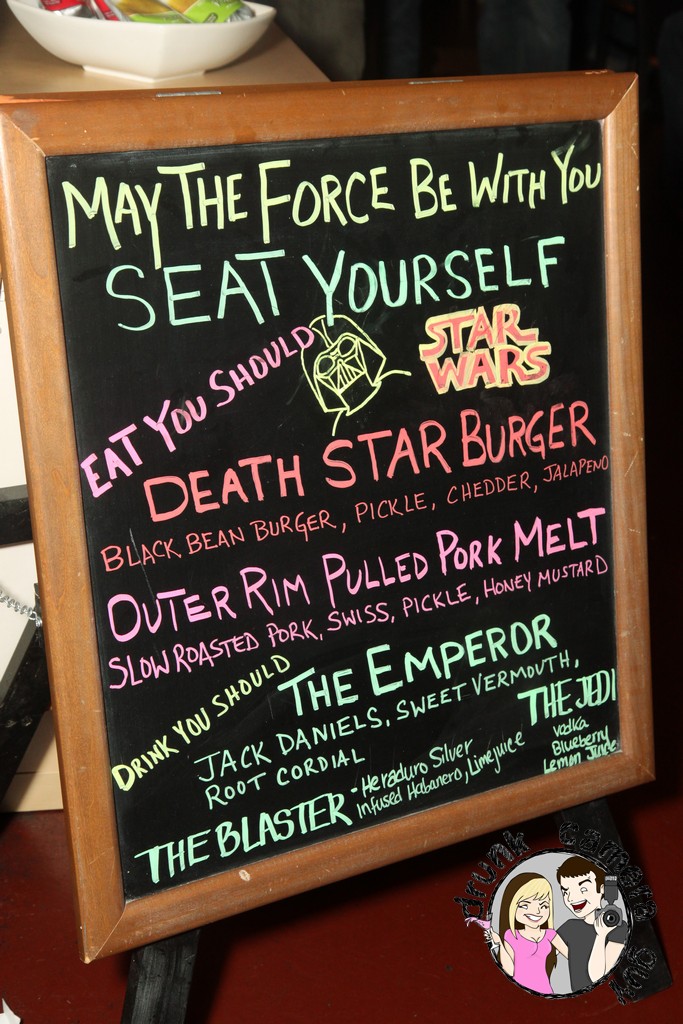 MAY THE FORCE BE WITH YOU
SEAT YOURSELF
EAT YOU SHOULD
STAR
WARS
DEATH STAR BURGER
BLACK BEAN BURGER, PICKLE, CHEDDER, JALAPENO
OUTER RIM PULLED PORK MELT
SLOW ROASTED PORK, SWISS, PICKLE, HONEY MUSTARD
DRINK YOU SHOULD
THE EMPEROR
JACK DANIELS, SWEET VERMOUTH,
ROOT CORDIAL
THE JEDI
vodka
Blueberry
Lemon
THE BLASTER - Heraduro Silver
Infused Habanero, Limejuice
drunk camera guy